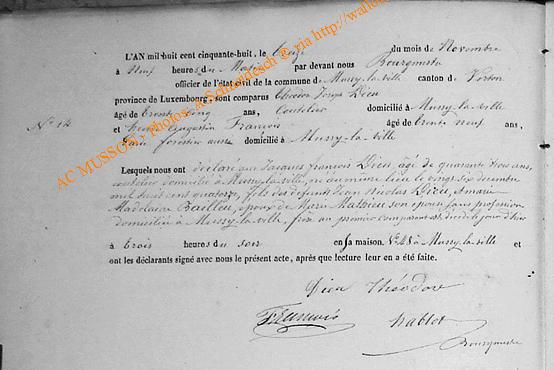 L'AN mil-huit cent cinquante-huit, le treize du mois de Novembre
à Neuf heures du Matin par devant nous Bourgmestre
officier de l'état civil de la commune de Mussy-la-ville canton de Virton
province de Luxembourg, sont comparus Théodore Dieu
âgé de trente cinq ans, Coutelier domicilié à Mussy-la-ville
No 14 et Augustin François âgé de trente neuf ans,
Garde forestier aussi domicilié à Mussy-la-ville
Lesquels nous ont déclaré que Jacques François Dieu, âgé de quarante trois ans,
coutelier domicilié à Mussy-la-ville, né au même lieu le vingt six décembre
mil huit cent quatorze, fils des défunts Jean Nicolas Dieu, & Marie
Madelaine Baillieu, époux de Marie Mathieu son épouse sans profession
domiciliée à Mussy-la-ville, frère au premier comparant est décédé le jour d'hier
à trois heures du soir en sa maison No 48 à Mussy-la-ville et
ont les déclarants signé avec nous le présent acte, après que lecture leur en a été faite.
Dieu Théodore
François
Bourgmestre
AC MUSSON - Photos: ac Schnaidesch @ via http://wallo